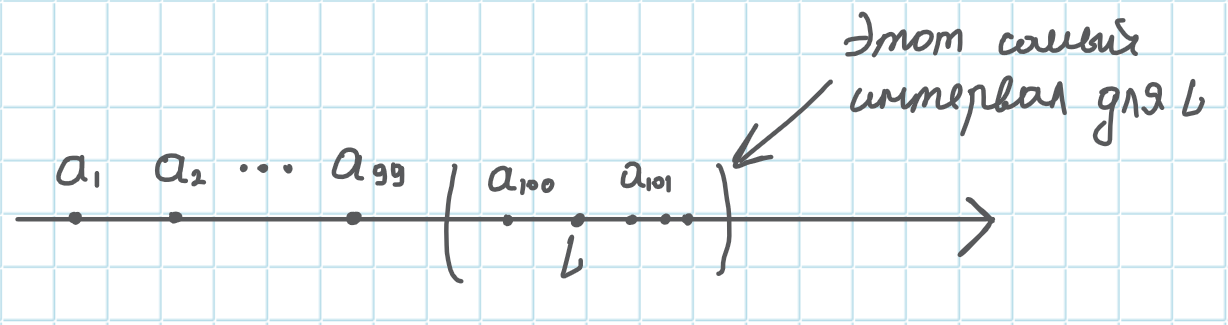 Этот самый
интервал для L
a₁ a₂ ... a₉₉ ( a₁₀₀ a₁₀₁ )
L